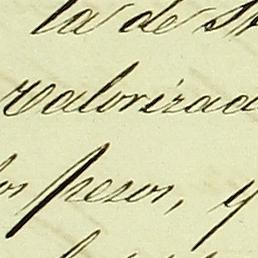 la de
valorizad
los pesos, y